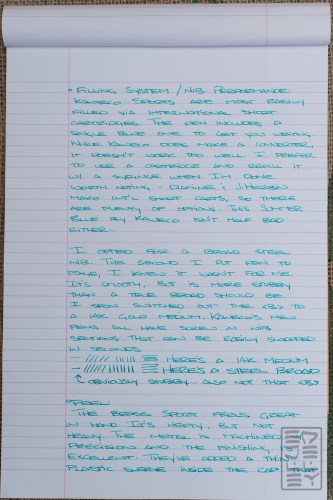 - Filling System / Nib Performance:
Kaweco Sports are most easily
filled via international short
cartridges. The pen includes a
single blue one to get you writing.
While Kaweco does make a converter,
it doesn't work too well. I prefer
to use a cartridge and refill it
w/ a syringe when I'm done.
Worth noting - Diamine & J. Herbin
make int'l short carts, so there
are plenty of options. This Summer
Blue by Kaweco isn't half bad
either.
I opted for a broad steel
nib. The second I put pen to
page, I knew it wasn't for me.
It's smooth, but is more stubby
than a true broad should be.
I soon switched out the <B> to
a 14K gold medium. Kaweco's new
pens all have screw in nib
sections that can be easily swapped
in seconds.
Here's a 14K medium
Here's a steel broad
obviously stubby. Also not that <B>
- Feel:
The Brass Sport feels great
in hand. It's hefty, but not
heavy. The metal is machined
precision and the finishing is
excellent. They've added a thin
plastic sleeve inside the cap that